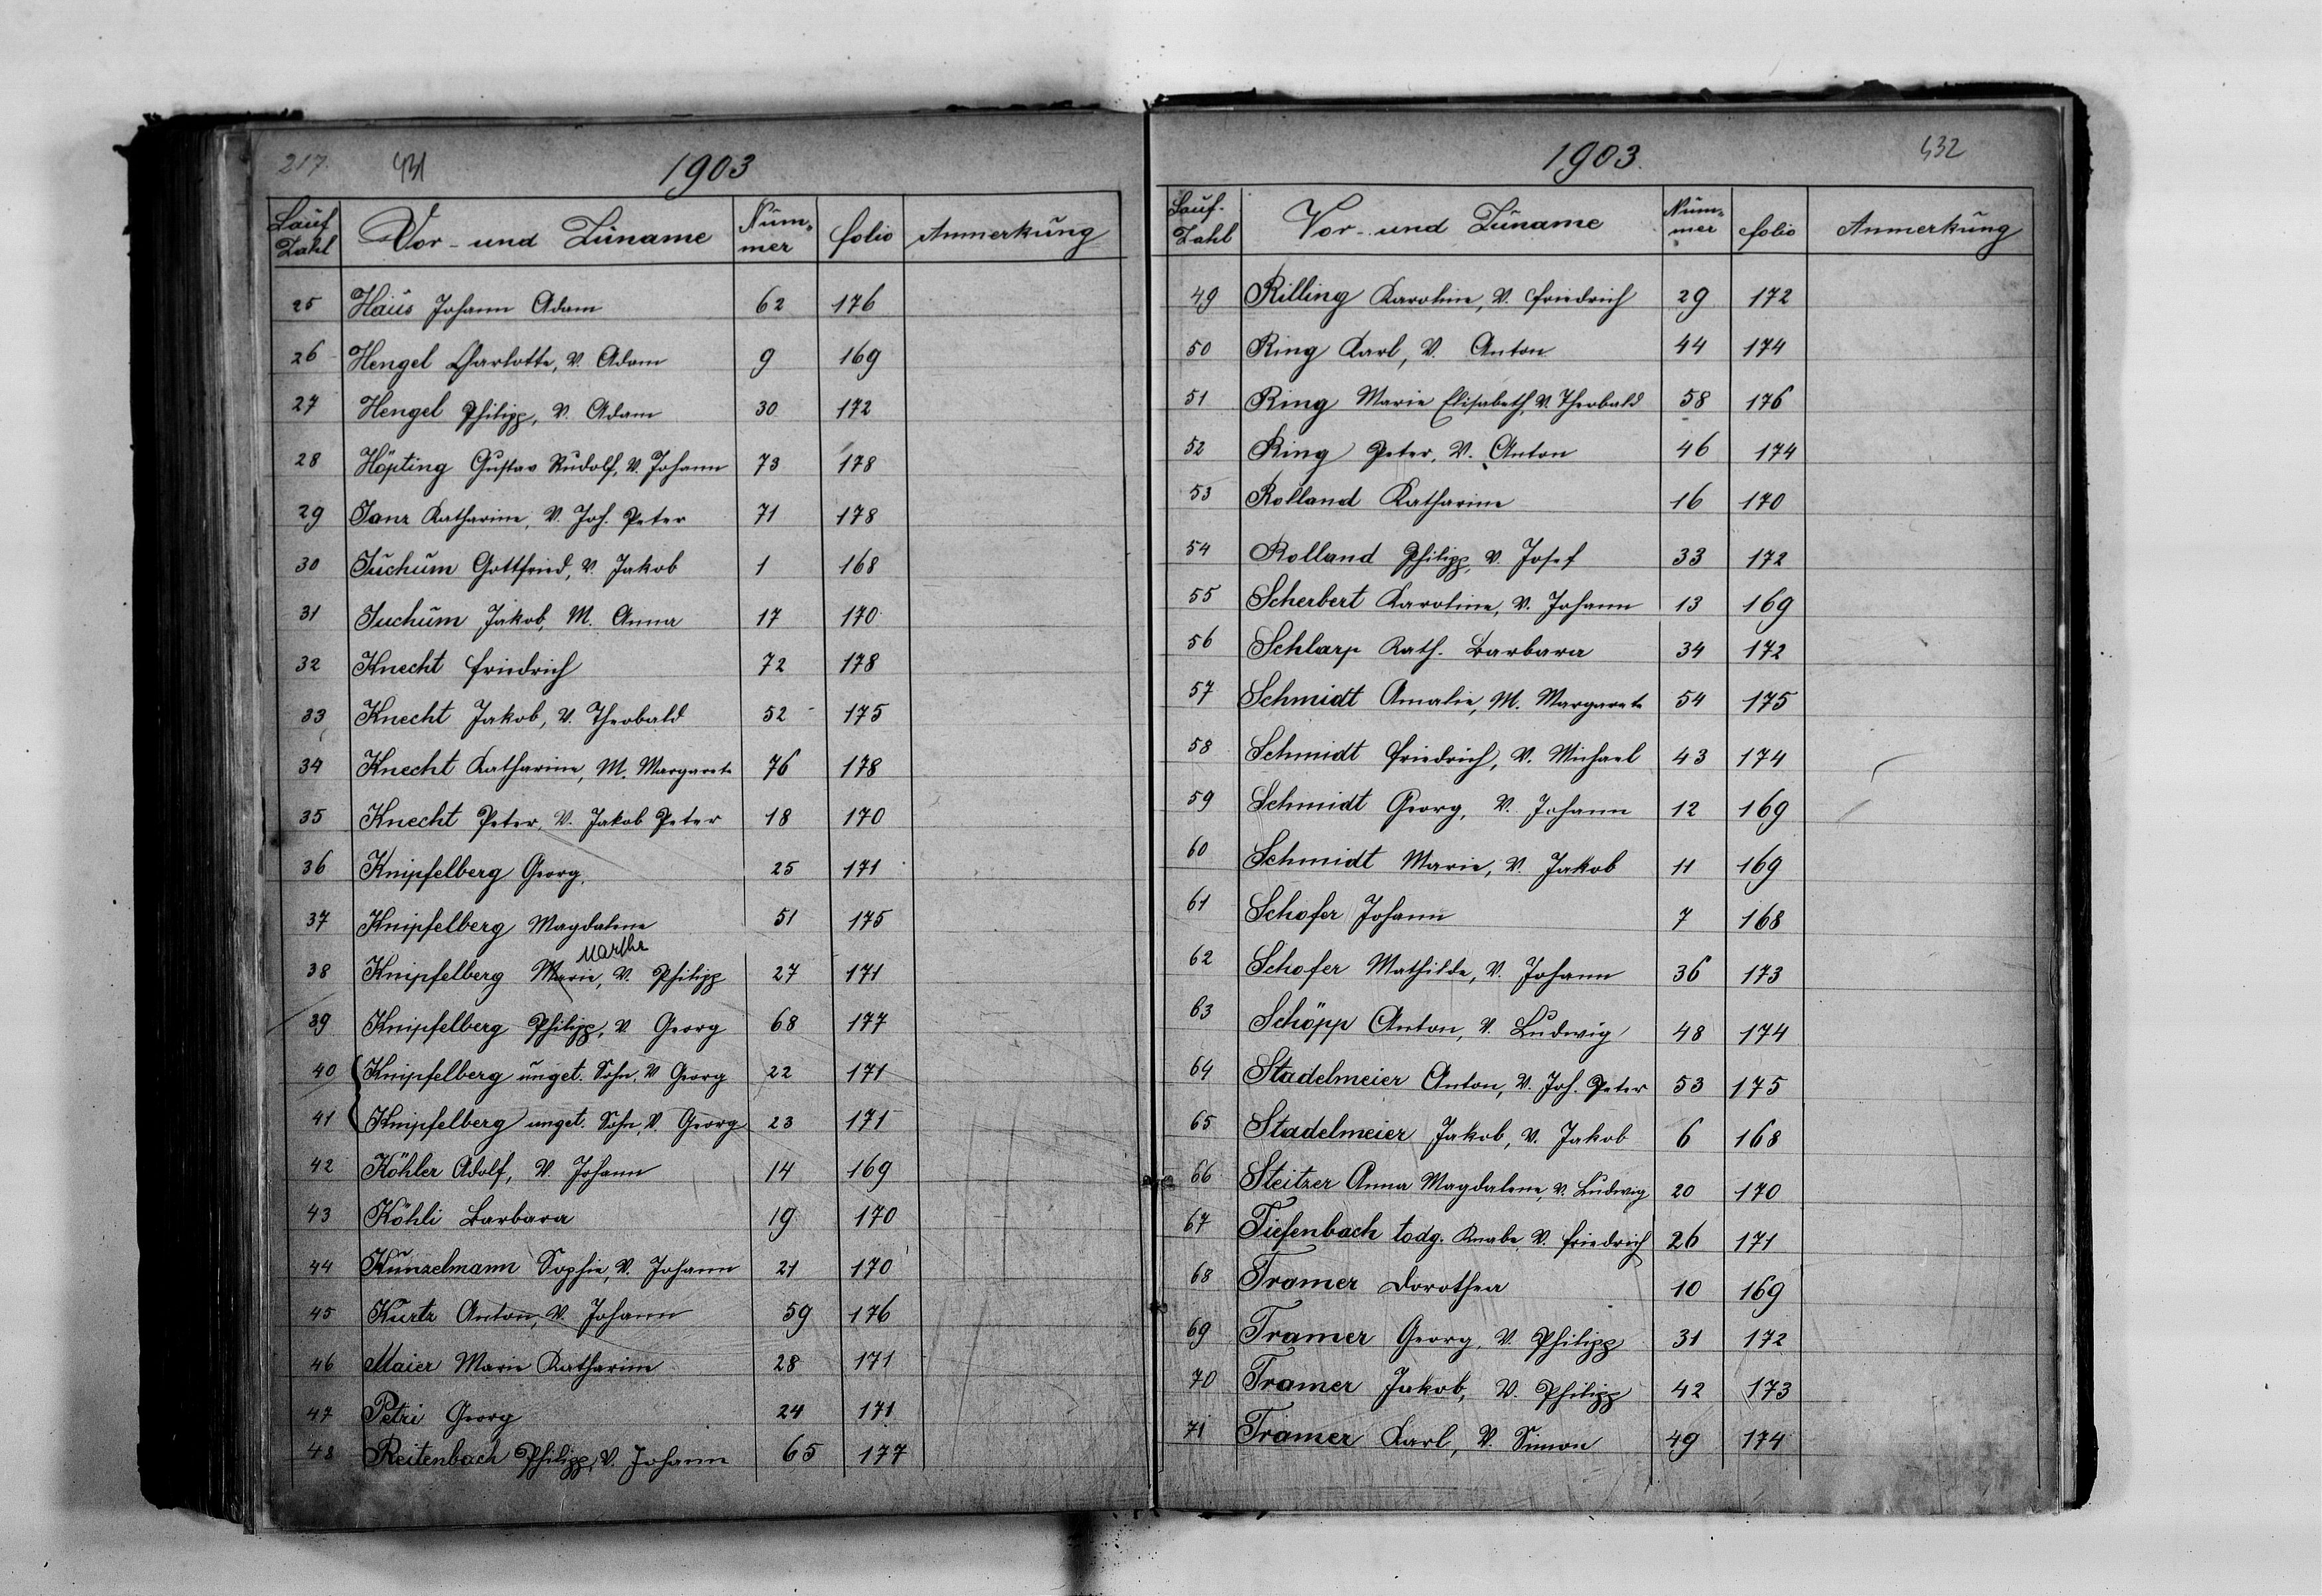 217. 431 1903
Lauf Zahl Vor- und Zuname Num- mer folio Anmerkung
25 Haus Johann Adam 62 176
26 Hengel Charlotte, V. Adam 9 169
27 Hengel Philipp, V. Adam 30 172
28 Höpting Gustav Rudolf, V. Johann 73 178
29 Janz Katharine, V. Joh. Peter 71 178
30 Juchum Gottfried, V. Jakob 1 168
31 Juchum Jakob, M. Anna 17 170
32 Knecht Friedrich 72 178
33 Knecht Jakob, V. Theobald 52 175
34 Knecht Katharine, M. Margarete 76 178
35 Knecht Peter, V. Jakob Peter 18 170
36 Knipfelberg Georg, 25 171
37 Knipfelberg Magdalene 51 175
Marthe
38 Knipfelberg Marie, V. Philipp 27 171
39 Knipfelberg Philipp, V. Georg 68 177
40 Knipfelberg unget. Sohn, V. Georg 22 171
41 Knipfelberg unget. Sohn, V. Georg 23 171
42 Köhler Adolf, V. Johann 14 169
43 Köhli Barbara 19 170
44 Kunzelmann Sophie, V. Johann 21 170
45 Kurtz Anton, V. Johann 59 176
46 Maier Marie Katharine 28 171
47 Petri Georg 24 171
48 Reitenbach Philipp, V. Johann 65 177
1903. 432
Lauf- Zahl Vor- und Zuname Num- mer folio Anmerkung
49 Rilling Karoline, V. Friedrich 29 172
50 Ring Karl, V. Anton 44 174
51 Ring Marie Elisabeth, V. Theobald 58 176
52 Ring Peter, V. Anton 46 174
53 Rolland Katharine 16 170
54 Rolland Philipp, V. Josef 33 172
55 Scherbert Karoline, V. Johann 13 169
56 Schlarp Kath. Barbara 34 172
57 Schmidt Amalie, M. Margarete 54 175
58 Schmidt Friedrich, V. Michael 43 174
59 Schmidt Georg, V. Johann 12 169
60 Schmidt Marie, V. Jakob 11 169
61 Schofer Johann 7 168
62 Schofer Mathilde, V. Johann 36 173
63 Schöpp Anton, V. Ludwig 48 174
64 Stadelmeier Anton, V. Joh. Peter 53 175
65 Stadelmeier Jakob, V. Jakob 6 168
66 Steitzer Anna Magdalene, V. Ludwig 20 170
67 Tiefenbach todg. Knabe, V. Friedrich 26 171
68 Tramer Dorothea 10 169
69 Tramer Georg, V. Philipp 31 172
70 Tramer Jakob, V. Philipp 42 173
71 Tramer Karl, V. Simon 49 174